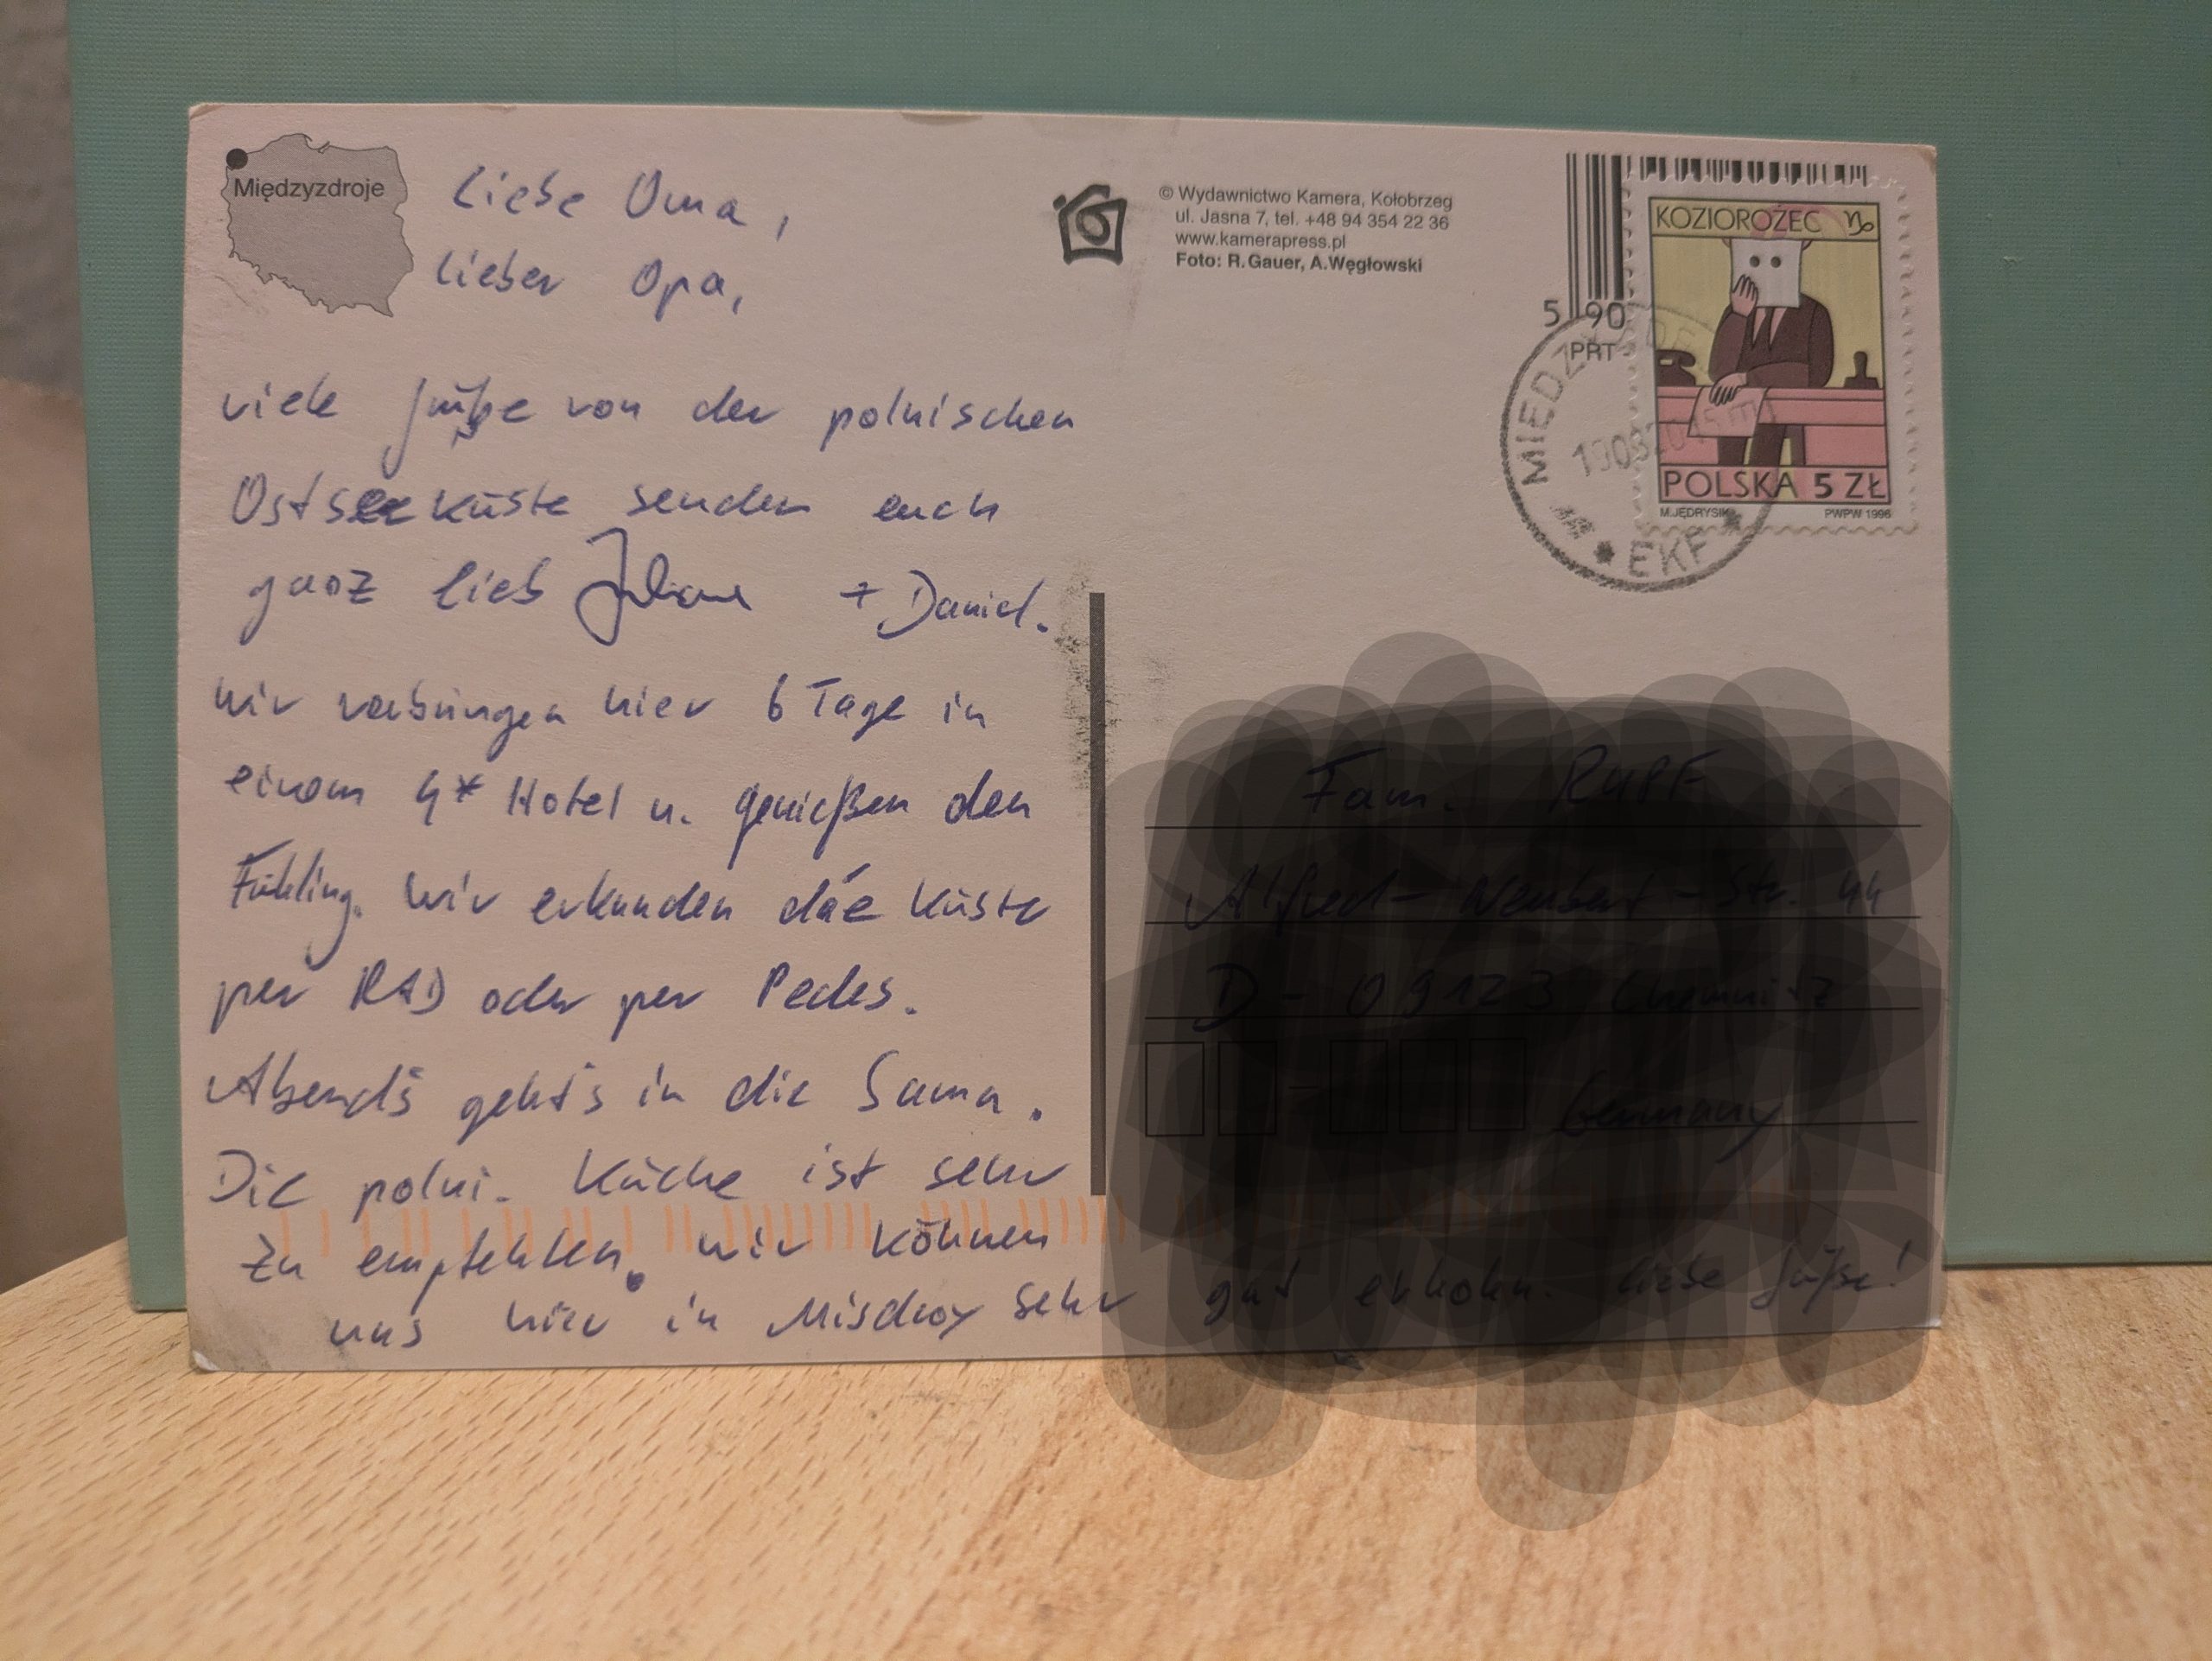 Międzyzdroje
Liebe Oma,
lieber Opa,
viele Grüße von der polnischen
Ostseeküste senden euch
ganz lieb Juliane + Daniel.
Wir verbringen hier 6 Tage in
einem 4* Hotel u. genießen den
Frühling. Wir erkunden die Küste
per RAD oder per Pedes.
Abends geht's in die Sauna.
Die polni. Küche ist sehr
zu empfehlen. Wir können
uns hier in Misdroy sehr gut erholen. Liebe Grüße!
© Wydawnictwo Kamera, Kołobrzeg
ul. Jasna 7, tel. +48 94 354 22 36
www.kamerapress.pl
Foto: R.Gauer, A.Węgłowski
5 90
PRT
KOZIOROŻEC
POLSKA 5 ZŁ
M.JĘDRYSIK PWPW 1996
EKF